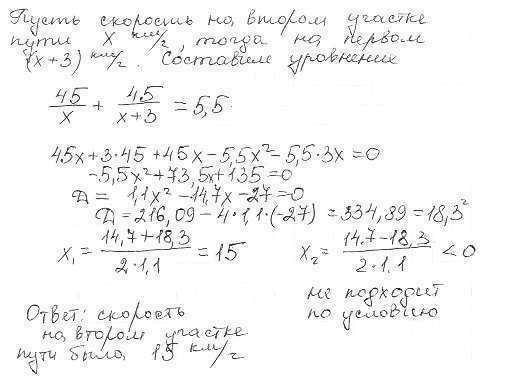 Пусть скорость на втором участке
пути x км/г, тогда на первом
(x+3) км/г. Составим уровнение
45/x + 45/(x+3) = 5,5
45x+3·45+45x-5,5x²-5,5·3x=0
-5,5x²+73,5x+135=0
Д = 1,1x²-14,7x-27=0
Д=216,09-4·1,1·(-27)=334,89=18,3²
x₁ = (14,7+18,3)/(2·1,1) = 15 x₂ = (14.7-18,3)/(2·1,1) <0
не подходит
по условию
Ответ: скорость
на втором участке
пути была 15 км/г